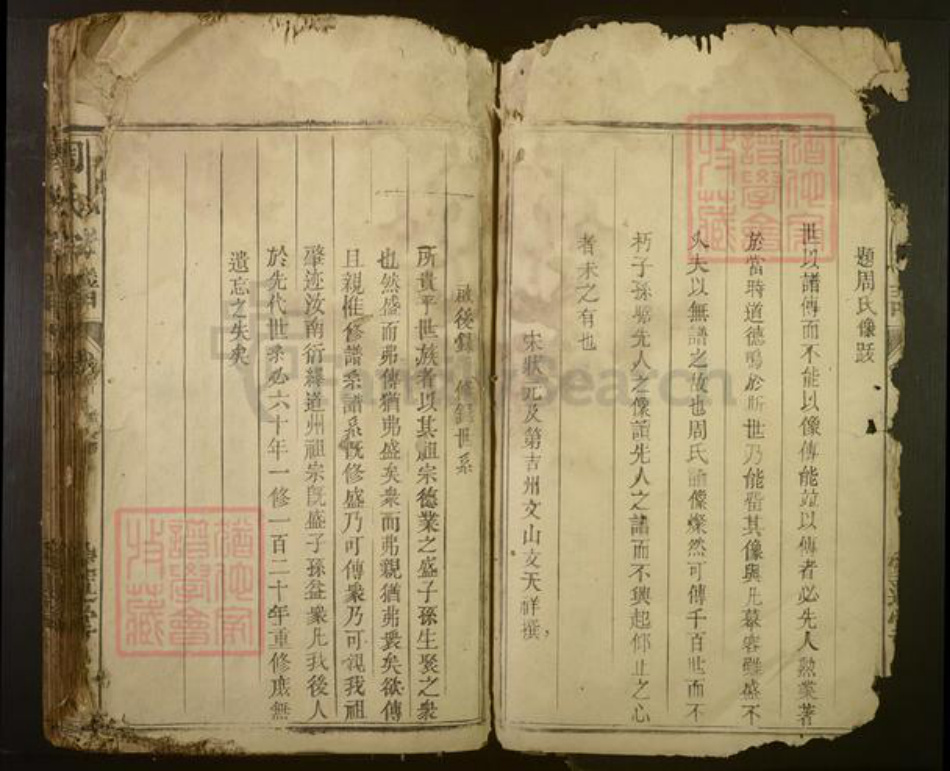 題周氏像跋
世以譜傳而不能以像傳能並以傳者必先人勲業著
於當時道德鳴於斯世乃能留其像與凡慕容雖盛不
久夫以無譜之故也周氏譜像燦然可傳千百世而不
朽子孫瞻先人之像讀先人之譜而不興起仰止之心
者未之有也
宋狀元及第吉州文山文天祥撰
啟後錄 修錄世系
所貴乎世族者以其祖宗德業之盛子孫生聚之衆
也然盛而弗傳猶弗盛矣衆而弗親猶弗衆矣欲傳
且親惟修譜系譜系旣修盛乃可傳衆乃可親我祖
肇迹汝南衍繹道州祖宗旣盛子孫益衆凡我後人
於先代世系必六十年一修一百二十年重修庶無
遺忘之失矣
FamilySearch